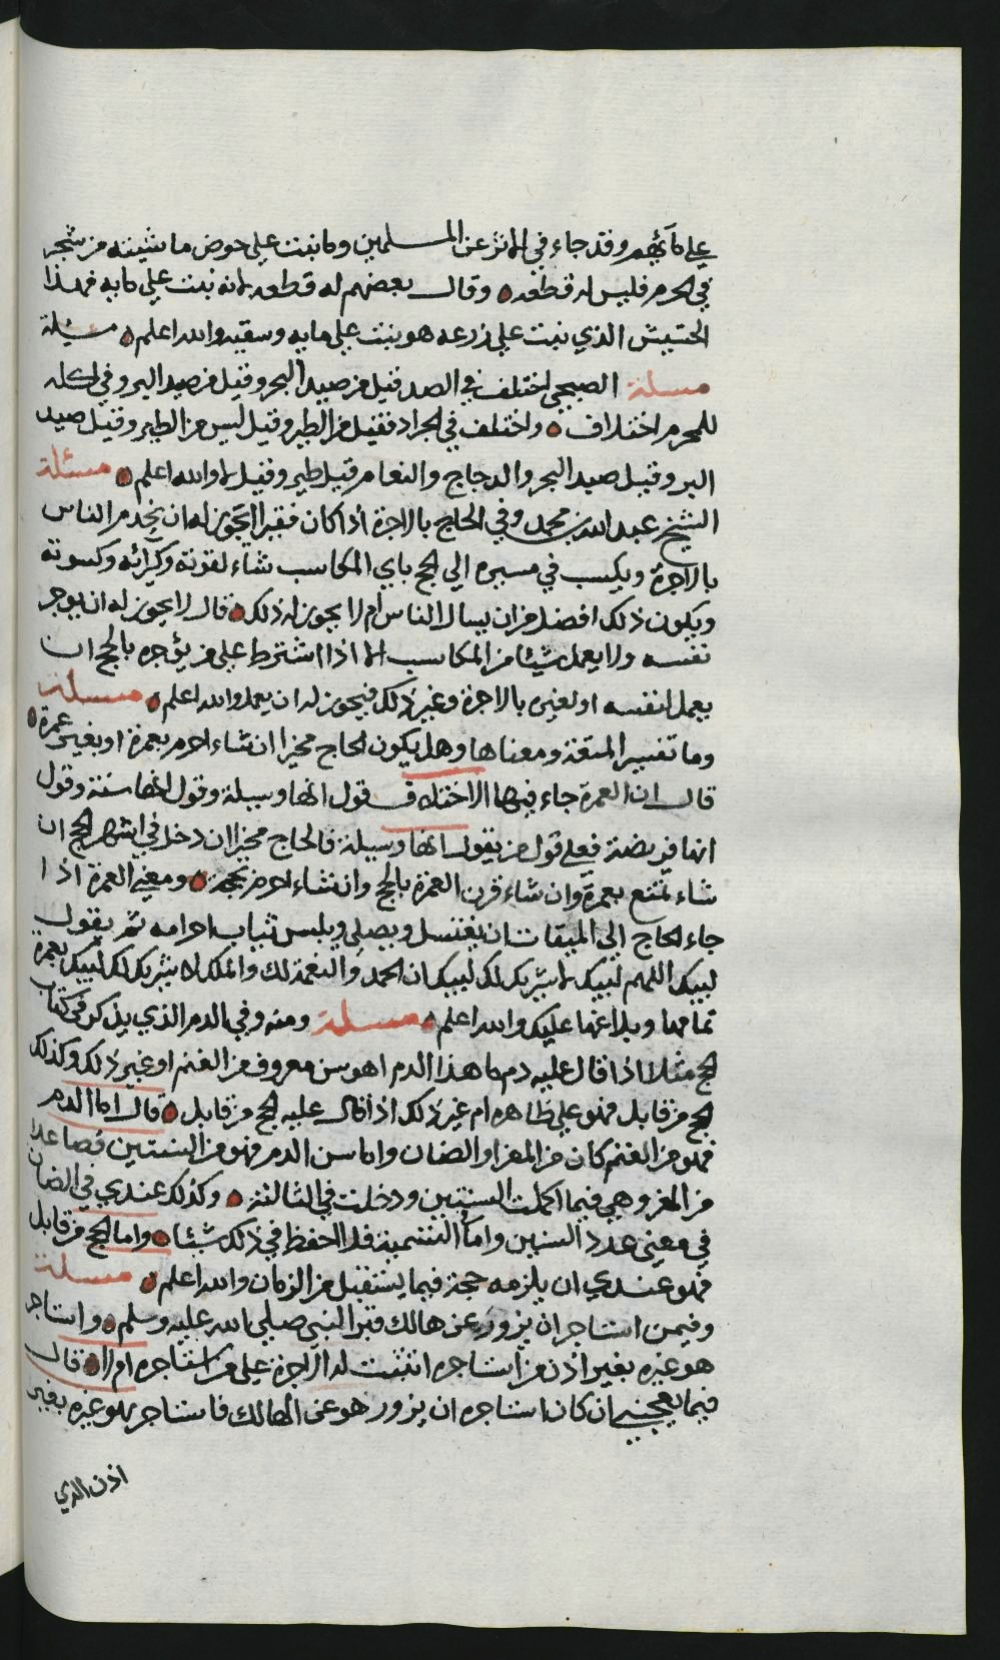 على مآئهم وقد جاء في الاثر عن المسلمين وما نبت على حوض ماشيته من شجر
في الحرم فليس له قطعه وقال بعضهم له قطعه لانه نبت على مايه فهذا
الحشيش الذي نبت على زرعه هو نبت على مايه وسقيه والله اعلم مسئلة
مسلة الصبحي اختلف في الصد قيل من صيد البحر وقيل من صيد البر وفي اكله
للمحرم اختلاف واختلف في الجراد فقيل من الطير وقيل ليس من الطير وقيل صيد
البر وقيل صيد البحر والدجاج والنعام قيل طير وقيل لا والله اعلم مسئلة
الشيخ عبد الله بن محمد وفي الحاج بالاجرة اذا كان فقيرا ايجوز له ان يخدم الناس
بالاجرة ويكسب في مسيره الي الحج باي المكاسب شاء لقوته وكرائه وكسوته
ويكون ذلك افضل من ان يسال الناس ام لا يجوز له ذلك قال لا يجوز له ان يوجر
نفسه ولا يعمل شيئا من المكاسب الا اذا اشترط على من يؤجره بالحج ان
يعمل لنفسه او لغيره بالاجرة وغير ذلك فيجوز له ان يعمل والله اعلم مسلة
وما تفسير المتعة ومعناها وهل يكون الحاج مخيرا ان شاء احرم بعمرة او بغير عمرة
قال ان العمرة جاء فيها الاختلاف قول انها وسيلة وقول انها سنة وقول
انها فريضة فعلى قول من يقول انها وسيلة فالحاج مخير ان دخل في اشهر الحج ان
شاء تمتع بعمرة وان شاء قرن العمرة بالحج وان شاء احرم بحجة ومعنى العمرة اذا
جاء الحاج الي الميقات ان يغتسل ويصلي ويلبس ثياب احرامه ثم يقول
لبيك اللهم لبيك لا شريك لك لبيك ان الحمد والنعمة لك والملك لا شريك لك لبيك بعمرة
تمامها وبلاغها عليك والله اعلم مسلة ومنه وفي الدم الذي يذكر في كتاب
الحج مثلا اذا قال عليه دم ما هذا الدم اهو سن معروف من الغنم او غير ذلك وكذلك
الحج من قابل فهو على ظاهره ام غير ذلك اذا قال عليه الحج من قابل قال اما الدم
فهو من الغنم كان من المعز او الضان واما سن الدم فهو من السنتين فصاعدا
من المعز وهي فيما اكملت السنتين ودخلت في الثالثة وكذلك عندي في الضان
في معنى عدد السنين واما التسمية فلا احفظ في ذلك شيئا واما الحج من قابل
فهو عندي ان يلزمه حجة فيما يستقبل من الزمان والله اعلم مسلة
وفيمن استاجر ان يزور عن هالك قبر النبي صلى الله عليه وسلم واستاجر
هو غيره بغير اذن من استاجره اتثبت له الاجرة على من استاجره ام لا قال
فيما يعجبني ان كان استاجره ان يزور هو عن الهالك فاستاجر هو غيره بغير
اذن الذي